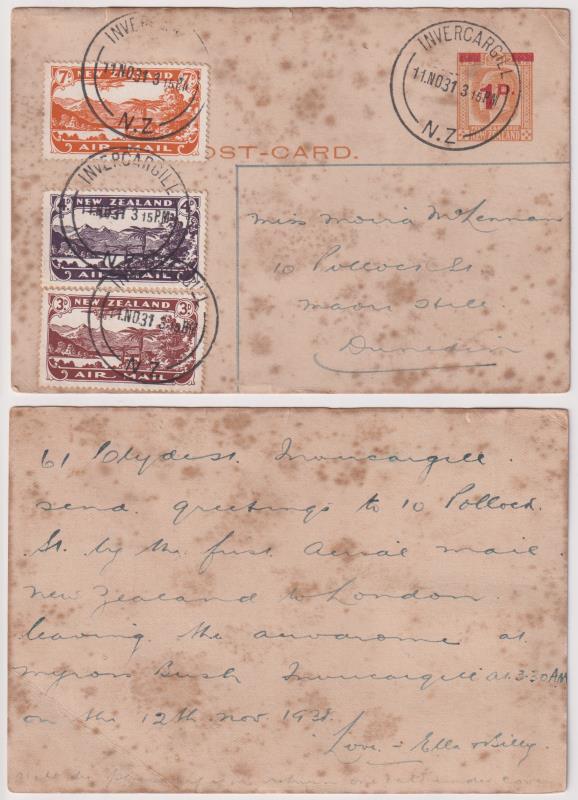 INVERCARGILL
11.NO31 3 15PM
N.Z.
7D NEW ZEALAND 7D
AIR MAIL
INVERCARGILL
11.NO31 3 15PM
N.Z.
1D.
NEW ZEALAND
POST-CARD.
INVERCARGILL
11.NO31 3 15PM
N.Z.
4D NEW ZEALAND 4D
AIR MAIL
11.NO31 3 15PM
N.Z.
3D NEW ZEALAND 3D
AIR MAIL
Miss Moira McLennan
10 Pollock St
Maori Hill
Dunedin
61 Clyde St. Invercargill.
send greetings to 10 Pollock
St. by the first Aerial mail
New Zealand to London.
leaving the aerodrome at
Myross Bush Invercargill at 3.30AM
on the 12th Nov. 1931.
Love - Ella & Billy.